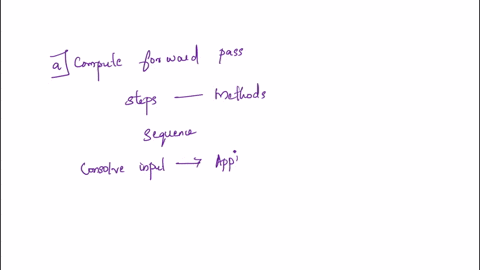 a] Compute forward pass
steps — Methods
Sequence
Consolve input → App